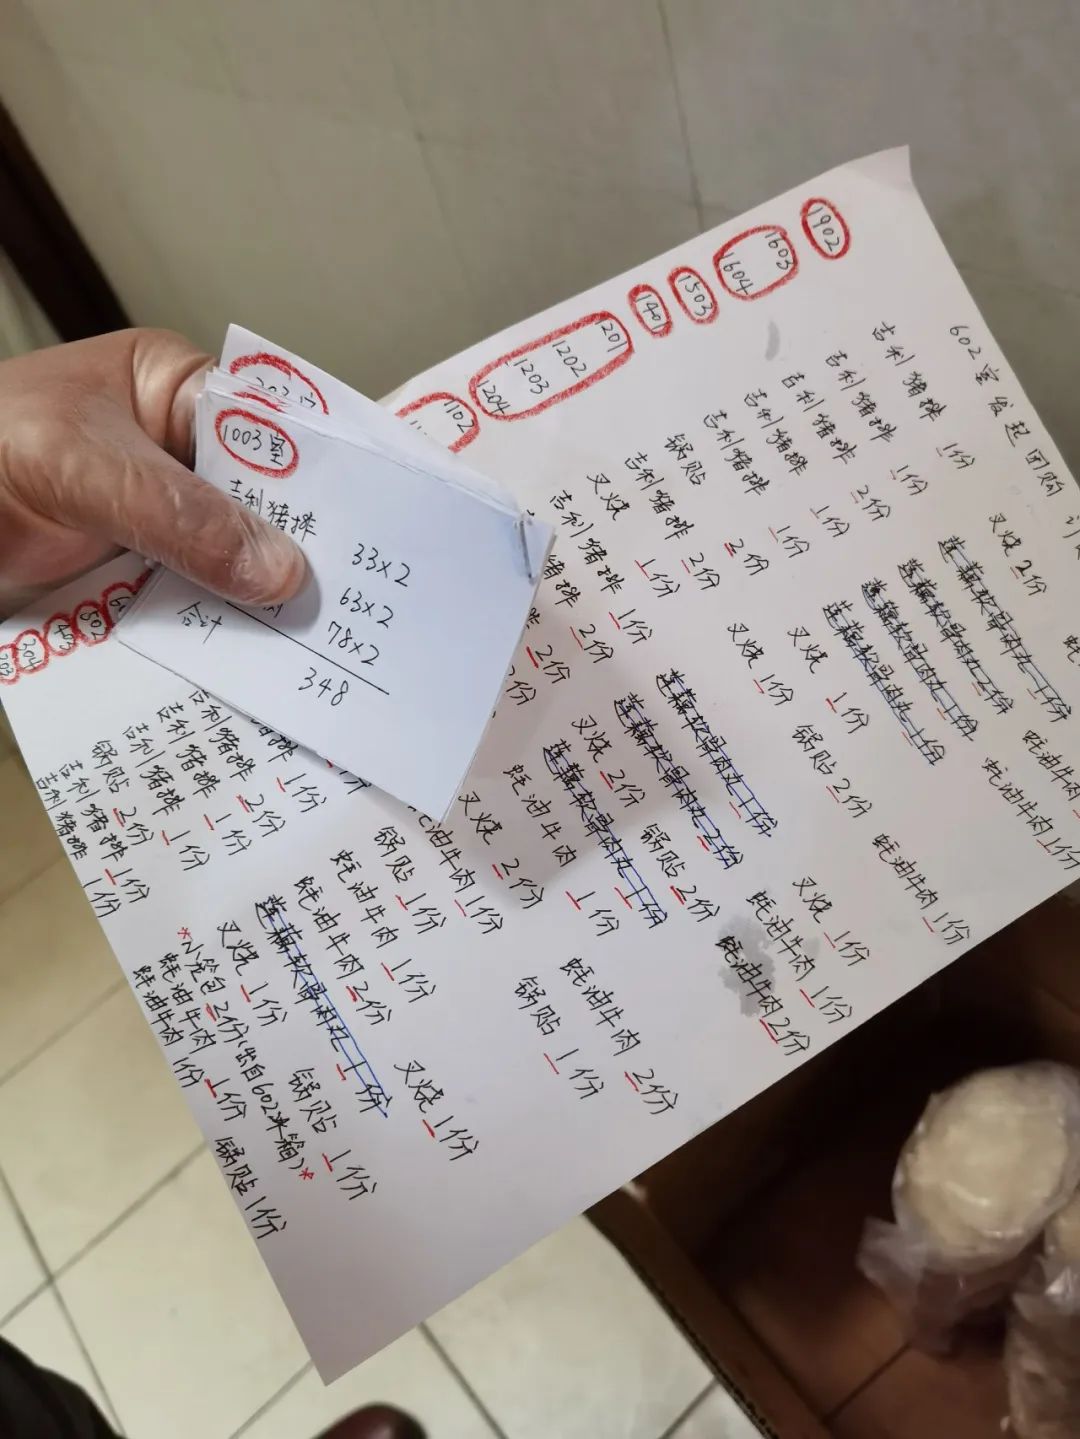 1003室
吉利猪排
33×2
63×2
78×2
合计
348
602室发起团购
1902
吉利猪排 1份
叉烧 2份
1603
吉利猪排 1份
莲藕软骨肉丸 1份
蚝油牛肉
1604
吉利猪排 2份
莲藕软骨肉丸 2份
蚝油牛肉 1份
1503
吉利猪排 1份
莲藕软骨肉丸 1份
1401
吉利猪排 1份
叉烧 1份
莲藕软骨肉丸 1份
1201
锅贴 2份
叉烧 1份
锅贴 2份
蚝油牛肉 1份
1202
吉利猪排 2份
1203
叉烧 1份
莲藕软骨肉丸 1份
叉烧 1份
1204
吉利猪排 1份
莲藕软骨肉丸 2份
锅贴 2份
蚝油牛肉 1份
1102
猪排 2份
叉烧 2份
莲藕软骨肉丸 1份
蚝油牛肉 2份
2份
蚝油牛肉 1份
蚝油牛肉 2份
锅贴 1份
叉烧 2份
牛肉 1份
锅贴 1份
叉烧 1份
猪排 1份
蚝油牛肉 1份
502
吉利猪排 2份
蚝油牛肉 2份
莲藕软骨肉丸 1份
锅贴 1份
403
吉利猪排 1份
叉烧 1份
204
锅贴 2份
吉利猪排 1份
*小笼包 2份(出自602冰箱)*
蚝油牛肉 1份
203
吉利猪排 1份
蚝油牛肉 1份
锅贴 1份